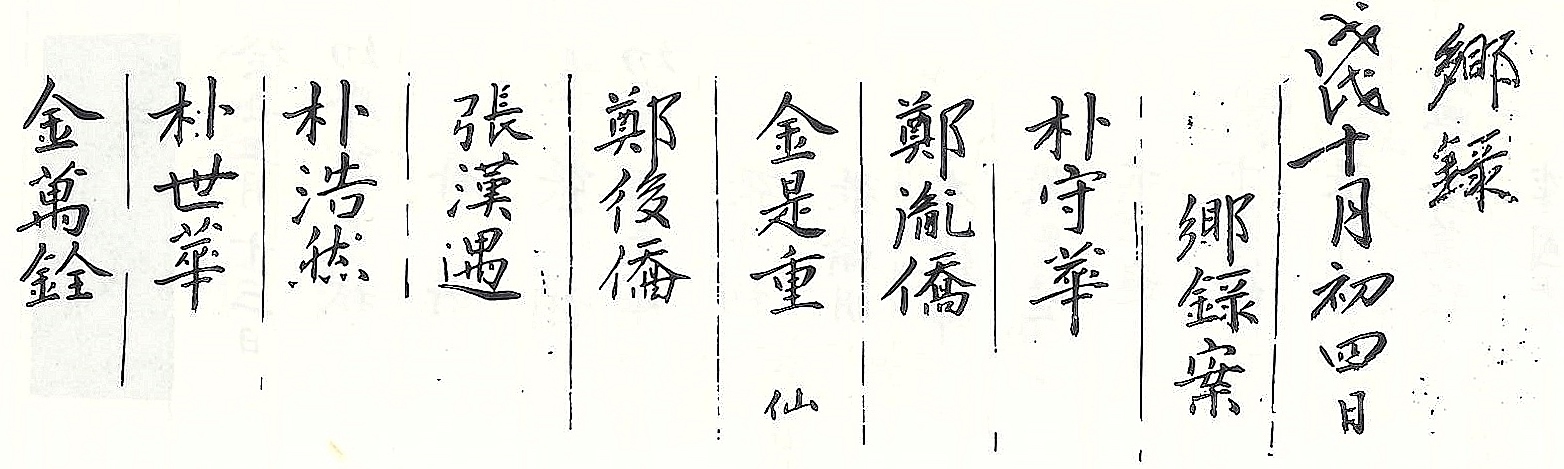 鄉錄
戊戌十月初四日
鄉錄案
朴守華
鄭胤僑
金是重 仙
鄭後僑
張漢遇
朴浩然
朴世華
金萬銓